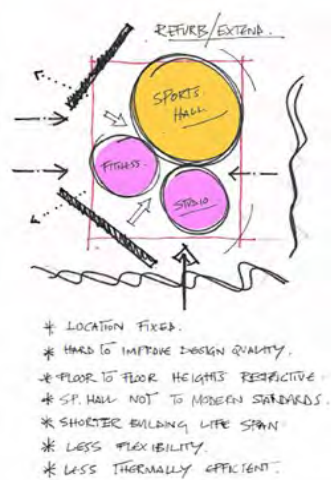 REFURB/EXTEND.
SPORTS
HALL
FITNESS.
STUDIO
* LOCATION FIXED.
* HARD TO IMPROVE DESIGN QUALITY.
* FLOOR TO FLOOR HEIGHTS RESTRICTIVE
* SP. HALL NOT TO MODERN STANDARDS.
* SHORTER BUILDING LIFE SPAN
* LESS FLEXIBILITY.
* LESS THERMALLY EFFICIENT.